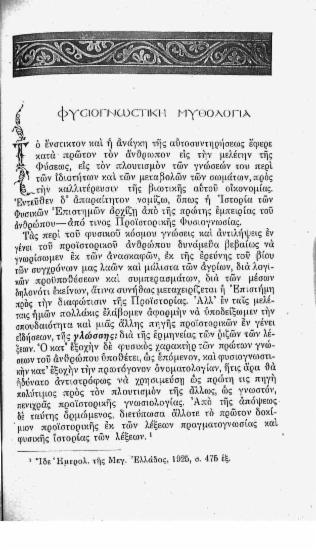 ΦΥΣΙΟΓΝΩΣΤΙΚΗ ΜΥΘΟΛΟΓΙΑ
Τὸ ἔνστικτον καὶ ἡ ἀνάγκη τῆς αὐτοσυντηρήσεως ἔφερε
κατὰ πρῶτον τὸν ἄνθρωπον εἰς τὴν μελέτην τῆς
Φύσεως, εἰς τὸν πλουτισμὸν τῶν γνώσεών του περὶ
τῶν ἰδιοτήτων καὶ τῶν μεταβολῶν τῶν σωμάτων, πρὸς
τὴν καλλιτέρευσιν τῆς βιοτικῆς αὐτοῦ οἰκονομίας.
Ἐντεῦθεν δ' ἀπαραίτητον νομίζω, ὅπως ἡ Ἱστορία τῶν
Φυσικῶν Ἐπιστημῶν ἀρχίζῃ ἀπὸ τῆς πρώτης ἐμπειρίας τοῦ
ἀνθρώπου—ἀπό τινος Προϊστορικῆς Φυσιογνωσίας.
Τὰς περὶ τοῦ φυσικοῦ κόσμου γνώσεις καὶ ἀντιλήψεις ἐν
γένει τοῦ προϊστορικοῦ ἀνθρώπου δυνάμεθα βεβαίως νὰ
γνωρίσωμεν ἐκ τῶν ἀνασκαφῶν, ἐκ τῆς ἐρεύνης τοῦ βίου
τῶν συγχρόνων μας λαῶν καὶ μάλιστα τῶν ἀγρίων, διὰ λογι-
κῶν προϋποθέσεων καὶ συμπερασμάτων, διὰ τῶν μέσων
δηλονότι ἐκείνων, ἅτινα συνήθως μεταχειρίζεται ἡ Ἐπιστήμη
πρὸς τὴν διαφώτισιν τῆς Προϊστορίας. Ἀλλ' ἐν ταῖς μελέ-
ταις ἡμῶν πολλάκις ἐλάβομεν ἀφορμὴν νὰ ὑποδείξωμεν τὴν
σπουδαιότητα καὶ μιᾶς ἄλλης πηγῆς προϊστορικῶν ἐν γένει
εἰδήσεων, τῆς γλώσσης· διὰ τῆς ἑρμηνείας τῶν ῥιζῶν τῶν λέ-
ξεων. Ὁ κατ' ἐξοχὴν δὲ φυσικὸς χαρακτὴρ τῶν πρώτων γνώ-
σεων τοῦ ἀνθρώπου ὑποθέτει, ὡς ἑπόμενον, καὶ φυσιογνωστι-
κὴν κατ' ἐξοχὴν τὴν πρωτόγονον ὀνοματολογίαν, ἥτις ἄρα θὰ
ἠδύνατο ἀντιστρόφως νὰ χρησιμεύσῃ ὡς πρώτη τις πηγὴ
πολύτιμος πρὸς τὸν πλουτισμὸν τῆς ἄλλως, ὡς γνωστόν,
πενιχρᾶς προϊστορικῆς γνωσιολογίας. Ἀπὸ τῆς ἀπόψεως
δὲ ταύτης ὁρμώμενος, διετύπωσα ἄλλοτε τὸ πρῶτον δοκί-
μιον προϊστορικῆς ἐκ τῶν λέξεων πραγματογνωσίας καὶ
φυσικῆς ἱστορίας τῶν λέξεων. ¹
¹ Ἰδὲ Ἡμερολ. τῆς Μεγ. Ἑλλάδος, 1925, σ. 475 ἑξ.